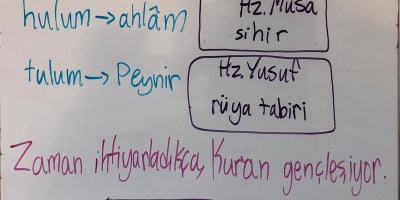 hulum→ahlâm
Hz. Musa
sihir
tulum→Peynir
Hz. Yusuf
rüya tabiri
Zaman ihtiyarladıkça, Kuran gençleşiyor.